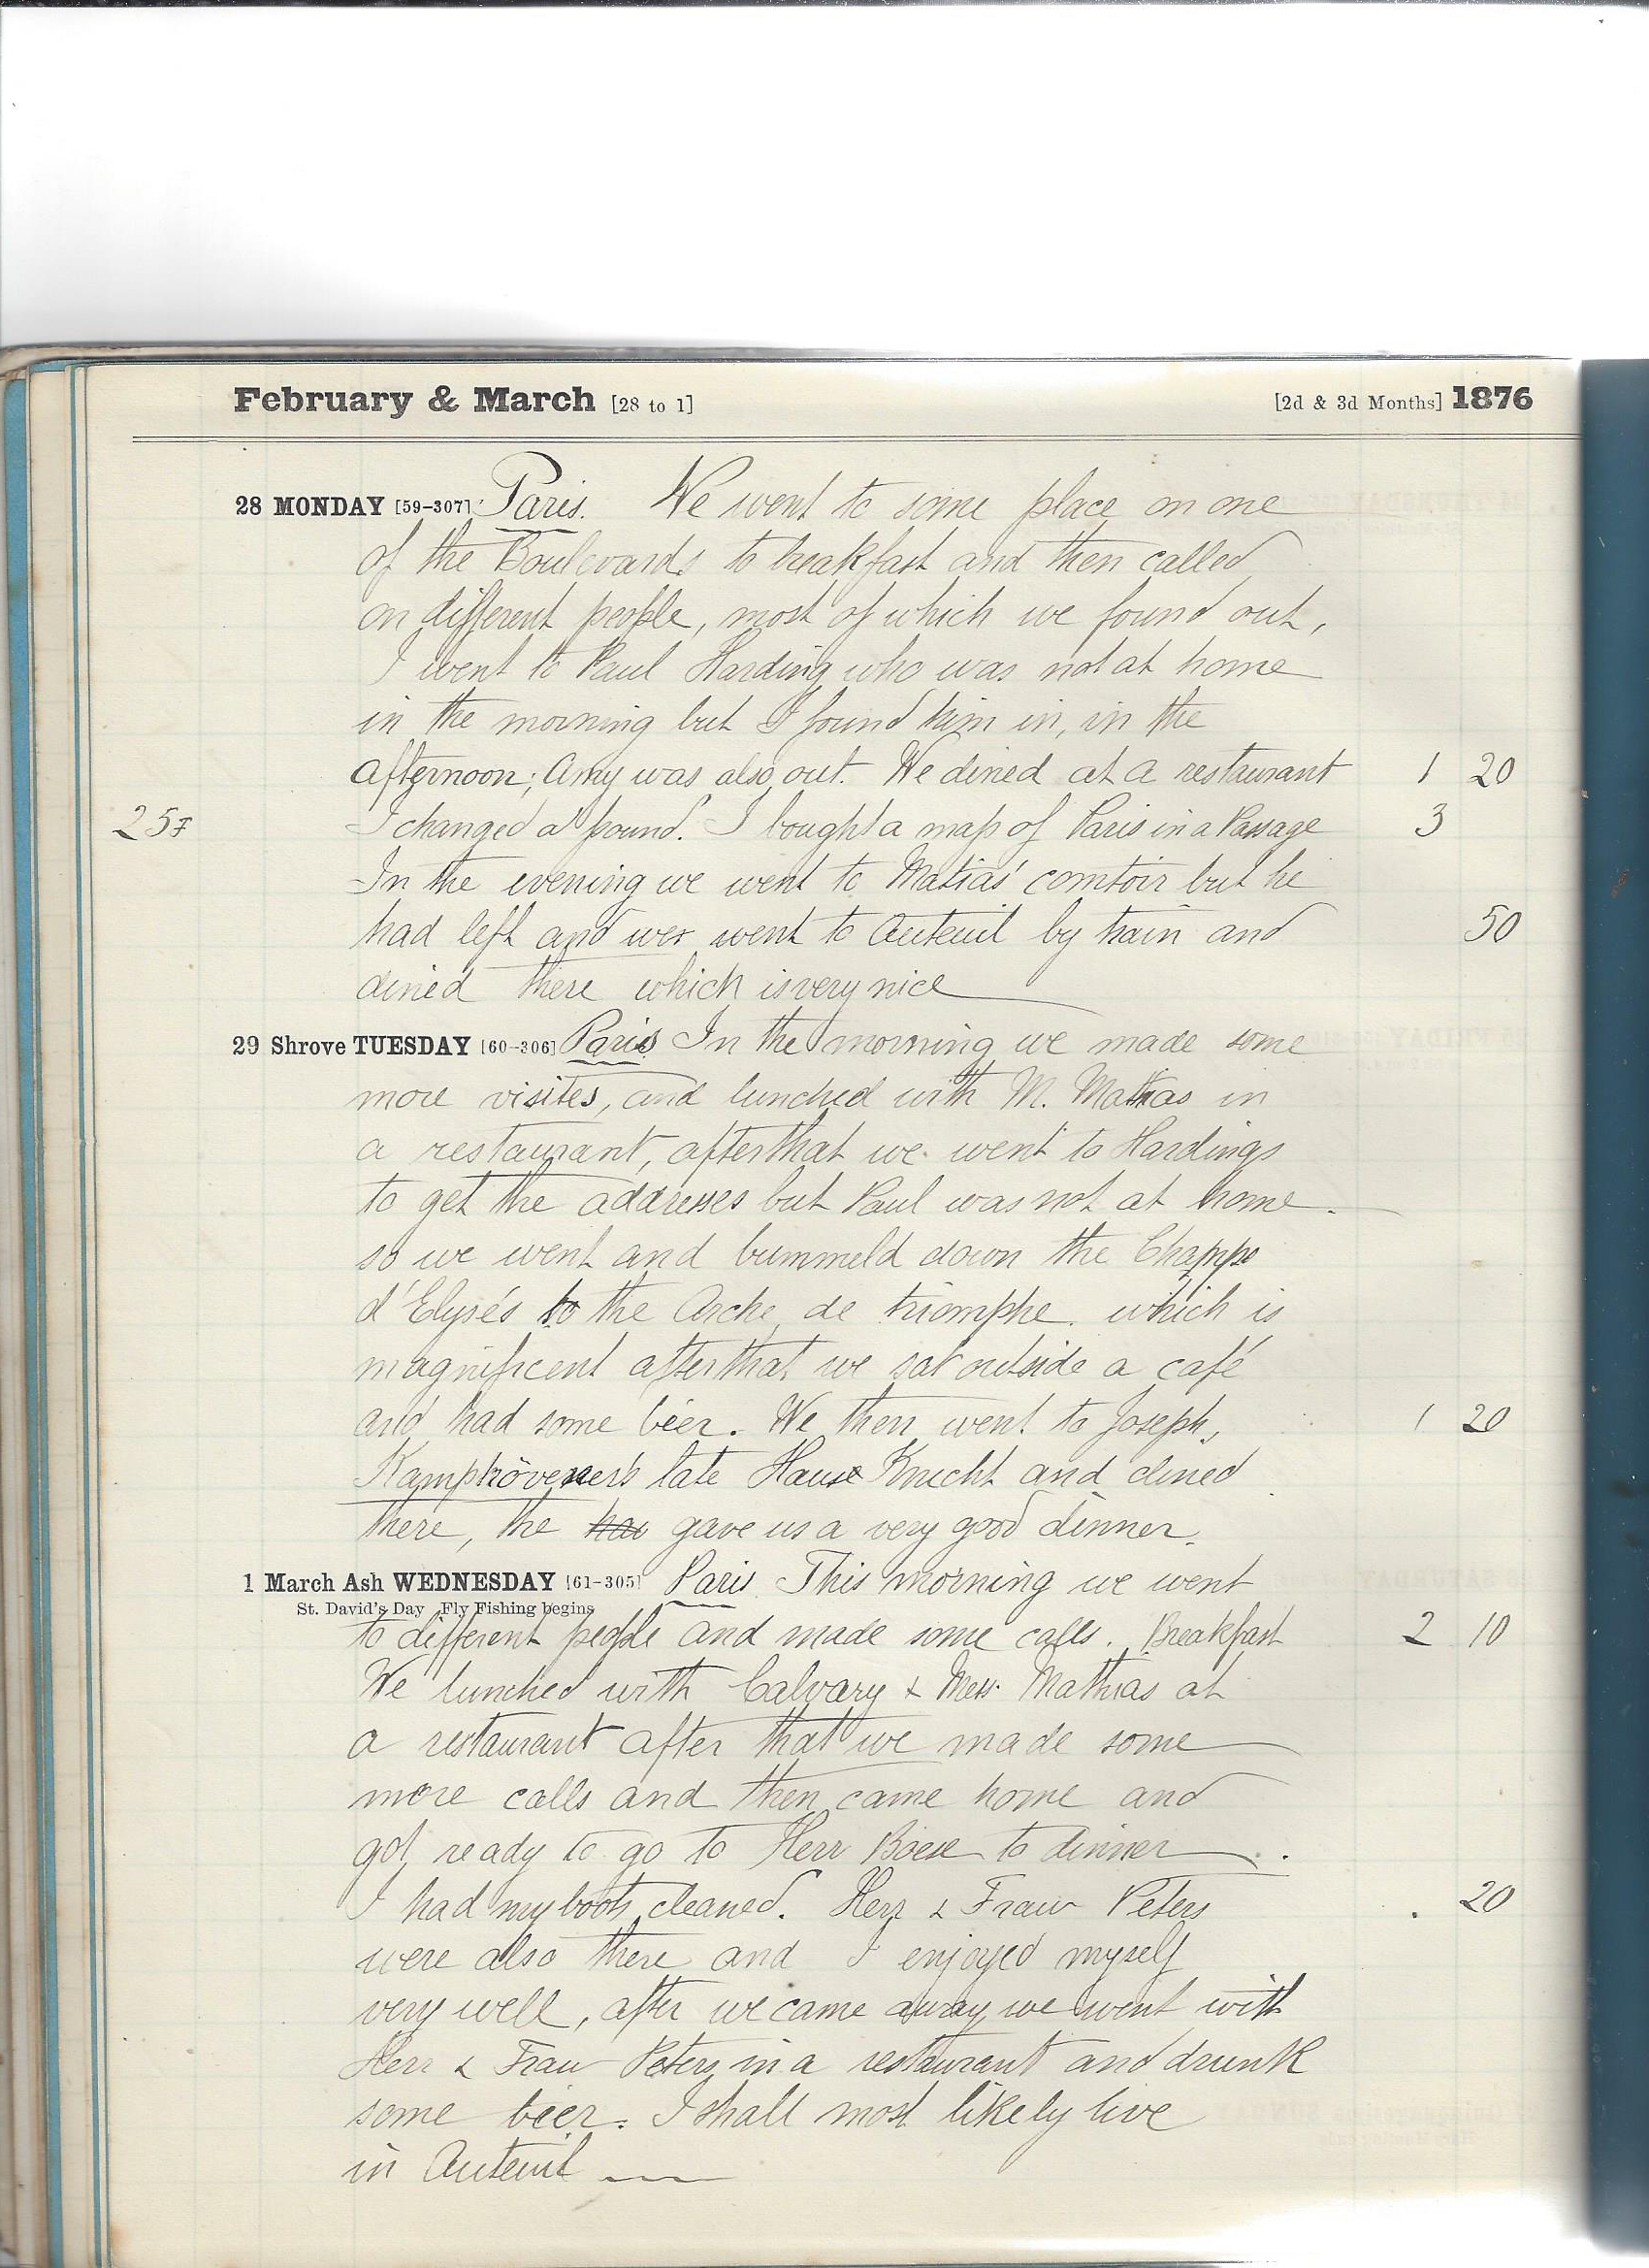 February & March [28 to 1] [2d & 3d Months] 1876
28 MONDAY [59-307] Paris. We went to some place on one
of the Boulevards to breakfast and then called
on different people, most of which we found out,
I went to Paul Harding who was not at home
in the morning but I found him in, in the
afternoon; Amy was also out. We dined at a restaurant 1 20
25f I changed a pound. I bought a map of Paris in a Passage 3
In the evening we went to Matias' comtoir but he
had left and went to Auteuil by train and 50
dined there which is very nice
29 Shrove TUESDAY [60-306] Paris In the morning we made some
more visites, and lunched with M. Mathias in
a restaurant, after that we went to Hardings
to get the addresses but Paul was not at home.
so we went and bummeld down the Champs
d'Elysés to the Arche de triomphe. which is
magnificent after that we sat outside a café
and had some beer. We then went to Joseph, 1 20
Kamphövener's late Haus Knecht and dined
there, the has gave us a very good dinner.
1 March Ash WEDNESDAY [61-305] Paris This morning we went
St. David's Day Fly Fishing begins
to different people and made some calls. Breakfast 2 10
We lunched with Calvary & Mess. Mathias at
a restaurant after that we made some
more calls and then came home and
got ready to go to Herr Boese to dinner.
I had my boots cleaned. Herr & Frau Peters . 20
were also there and I enjoyed myself
very well, after we came away we went with
Herr & Frau Peters in a restaurant and drunk
some beer. I shall most likely live
in Auteuil